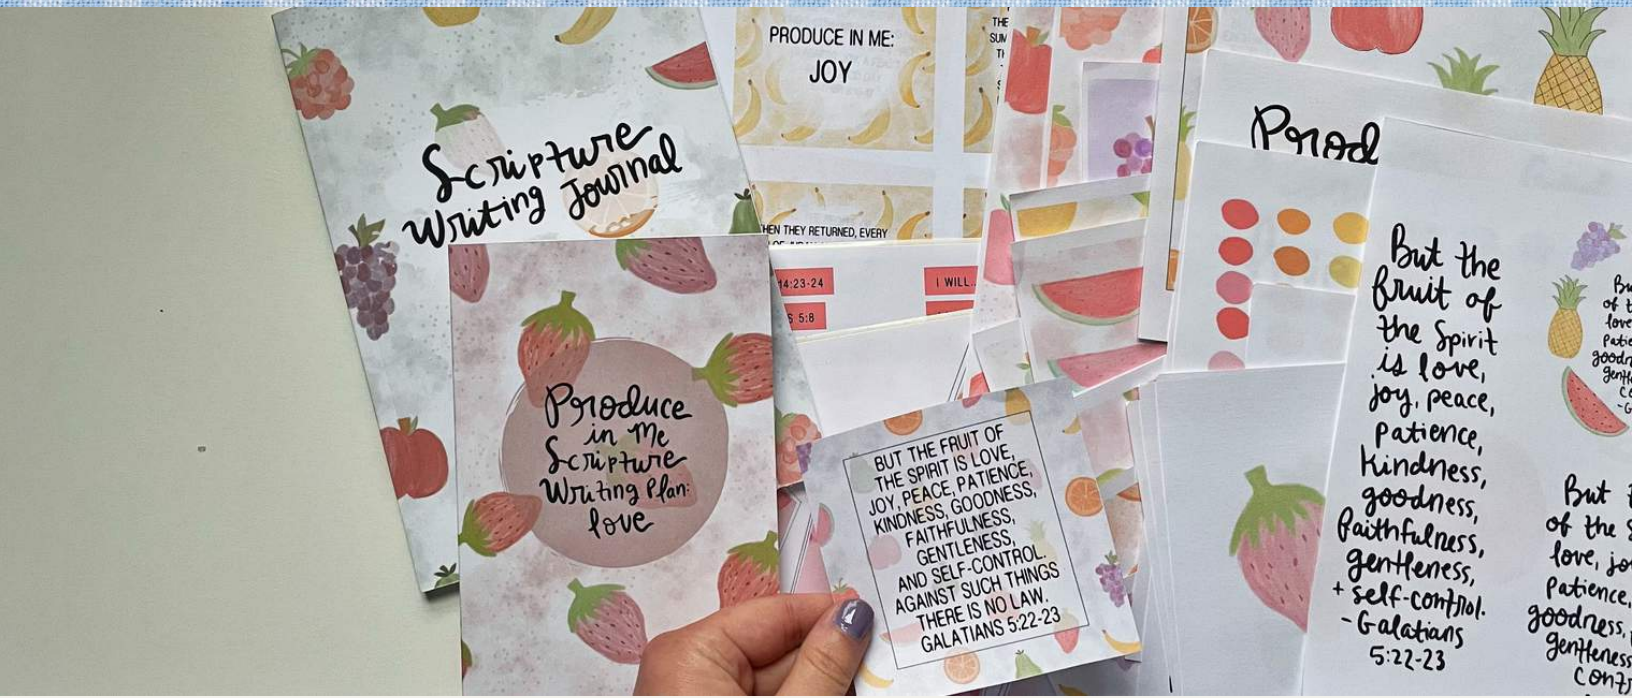 Scripture
Writing Journal
Produce
in Me
Scripture
Writing Plan:
love
PRODUCE IN ME:
JOY
THE
HEN THEY RETURNED, EVERY
14:23-24
5:8
I WILL...
BUT THE FRUIT OF
THE SPIRIT IS LOVE,
JOY, PEACE, PATIENCE,
KINDNESS, GOODNESS,
FAITHFULNESS,
GENTLENESS,
AND SELF-CONTROL.
AGAINST SUCH THINGS
THERE IS NO LAW.
GALATIANS 5:22-23
Prod
But the
fruit of
the Spirit
is love,
joy, peace,
patience,
kindness,
goodness,
faithfulness,
gentleness,
+ self-control.
- Galatians
5:22-23
of t
love
Patie
But
of the S
love, jo
Patience,
goodness,
gentleness
Cont